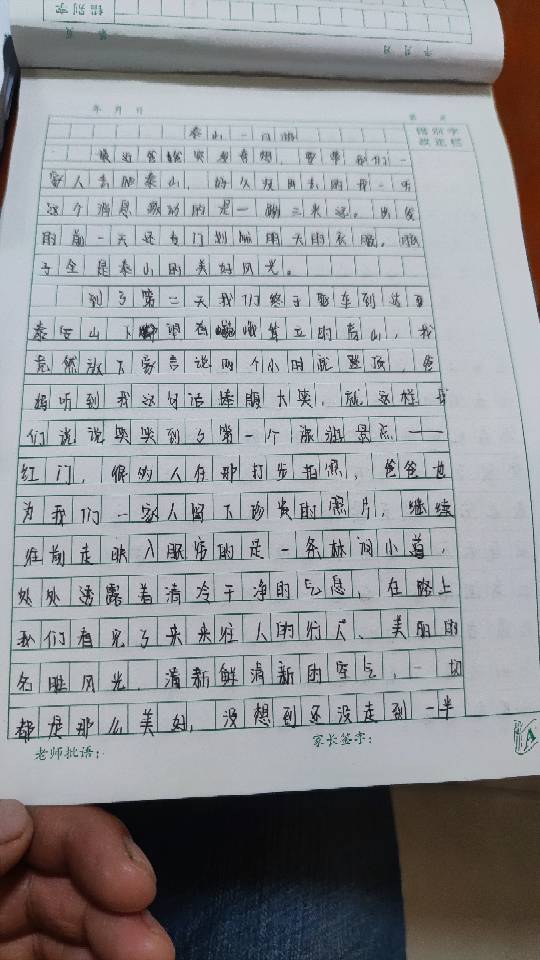 错别字
年 月 日
年 月 日 第 页
错别字
改正栏
泰山一日游
最近爸爸突发奇想，要带我们一
家人去爬泰山，好久没出去的我一听
这个消息激动的是一蹦三米远。出发
的前一天还专门到脑明天的衣服。脑
子全是泰山的美好风光。
到了第二天我们终于驱车到达
泰安山下望着巍峨耸立的高山，我
竟然放下豪言说两个小时就登顶，爸
妈听到我这句话捧腹大笑，就这样我
们说说笑笑到了第一个旅游景点——
红门，很多人在那打步拍照，爸爸也
为我们一家人留下珍贵的照片，继续
往前走映入眼帘的是一条林间小道，
处处透露着清冷干净的气息，在路上
我们看见了来来往人的行人、美丽的
名胜风光，清新鲜清新的空气，一切
都是那么美好，没想到还没走到一半
老师批语： 家长签字：